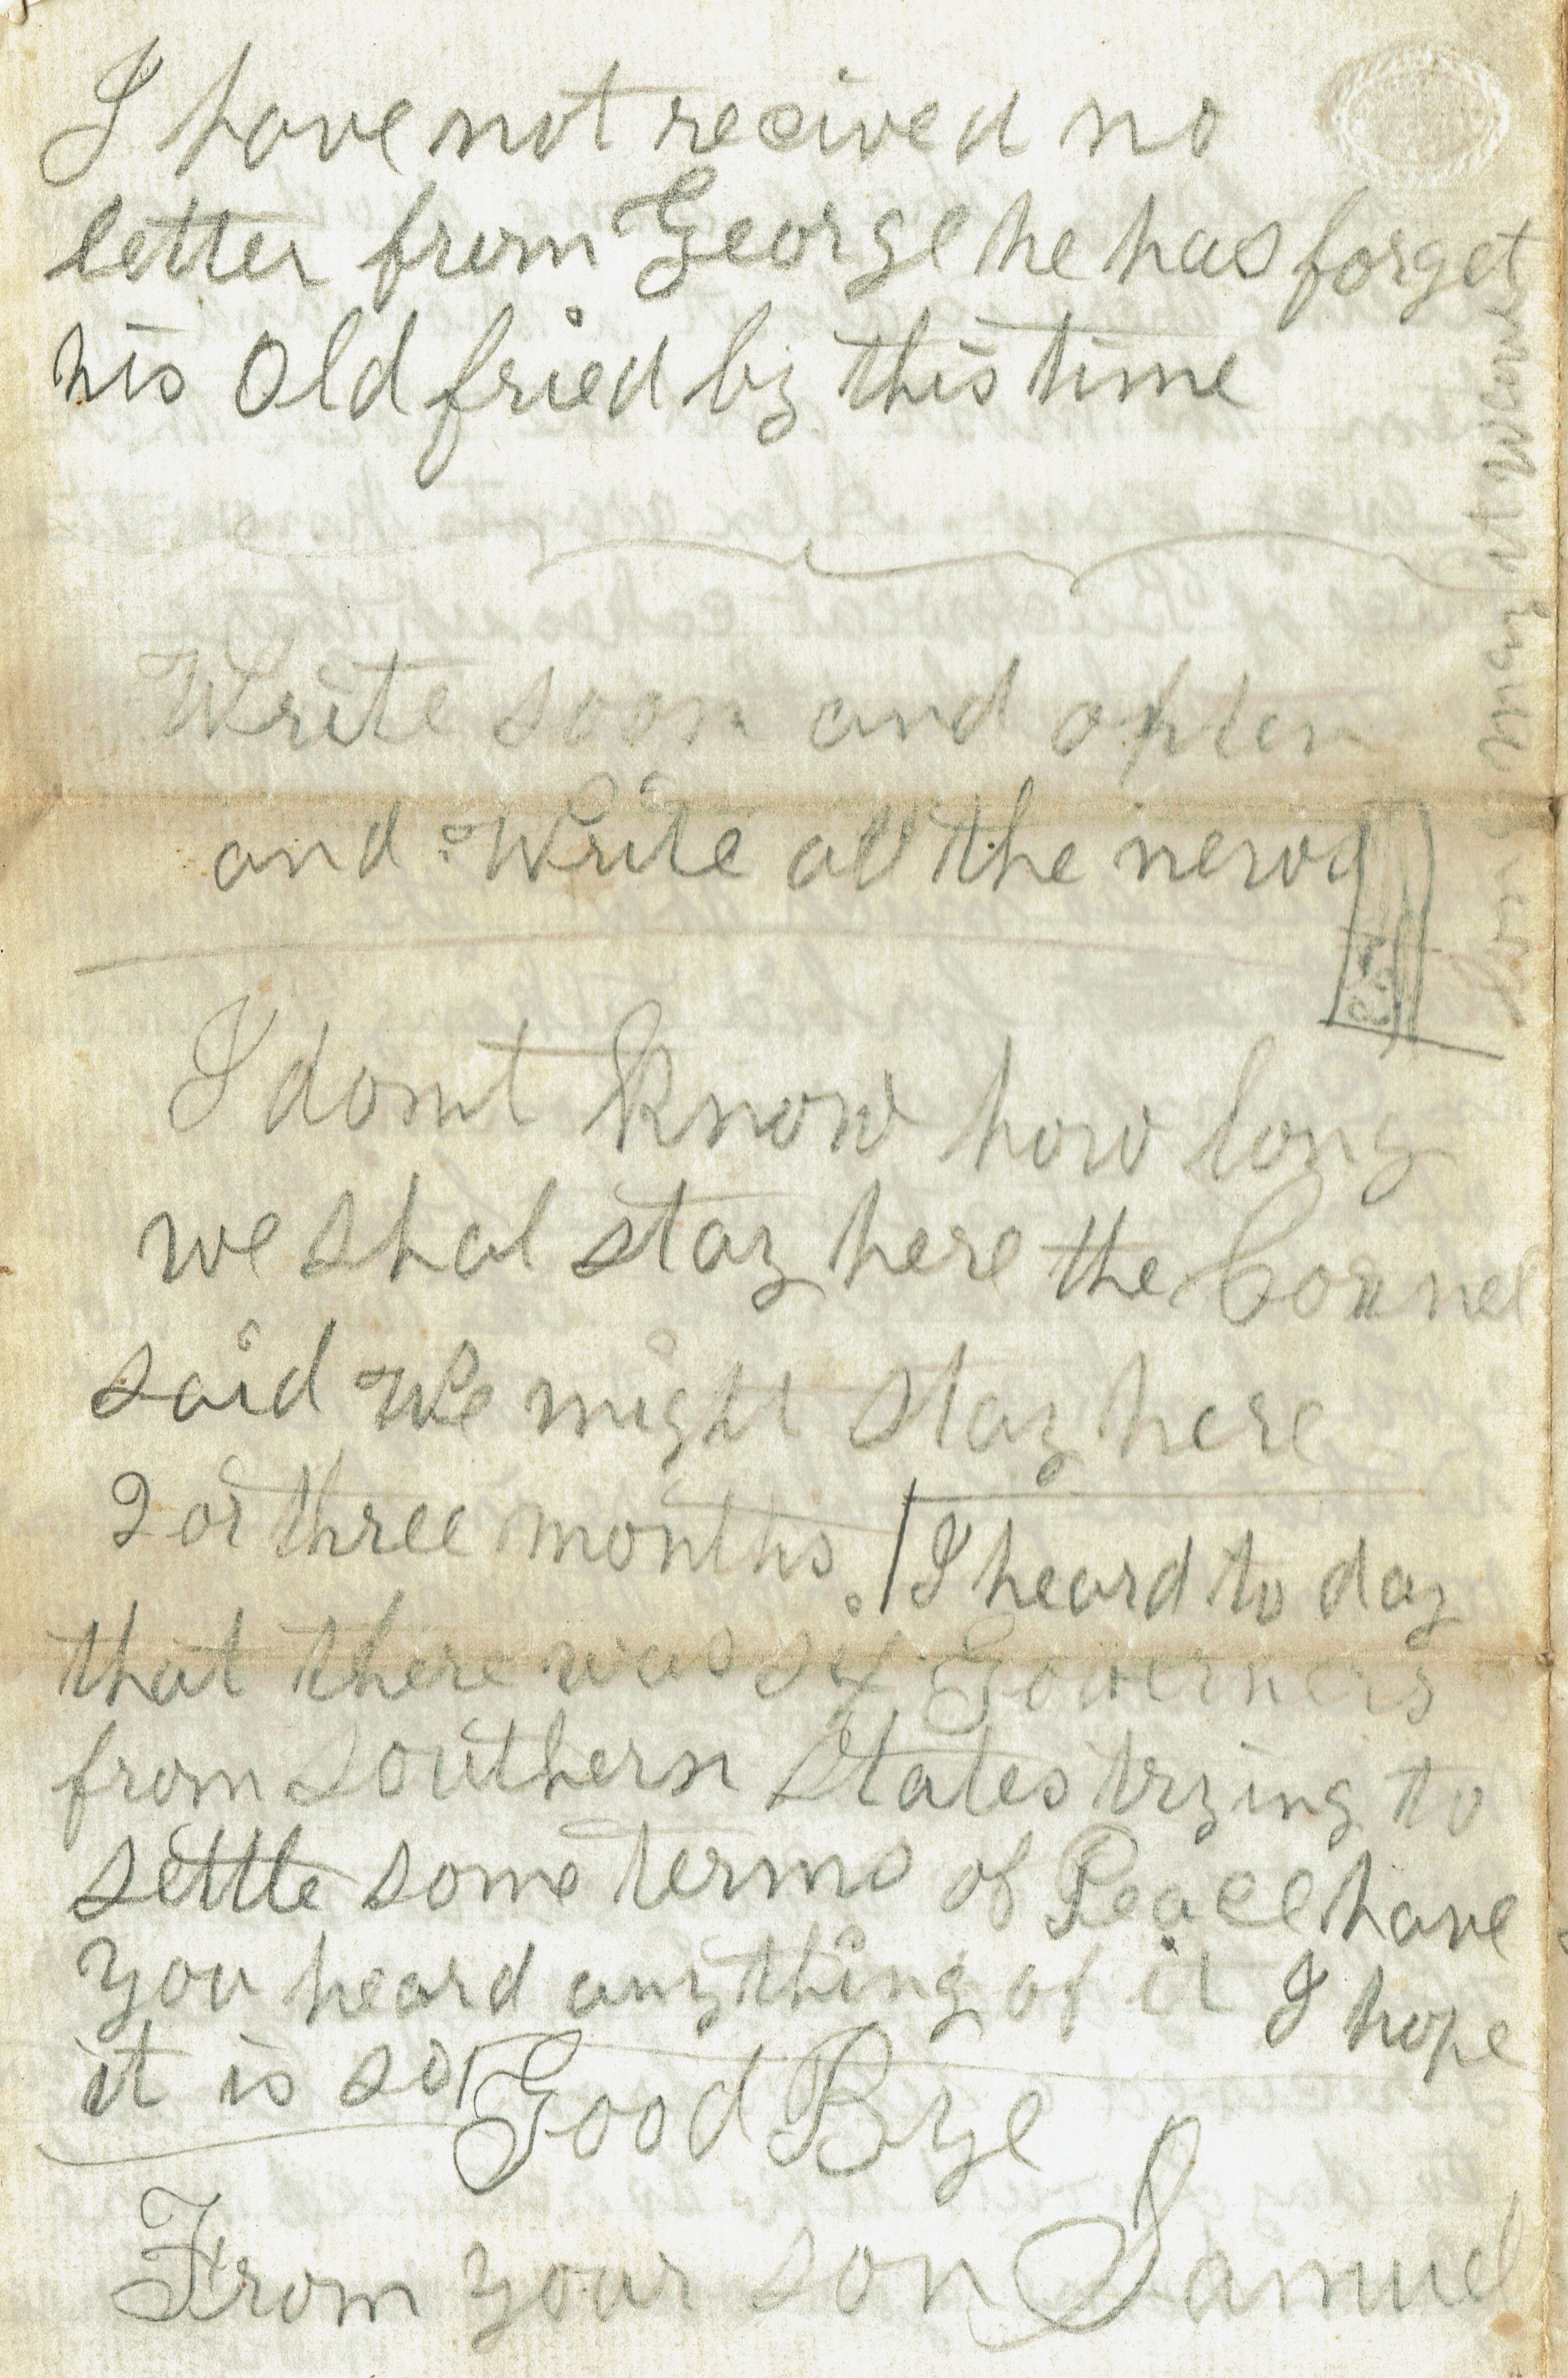 I have not recived no
letter from George he has forget
his Old fried by this time
Write soon and opten
and Write all the news
I dont know how long
we shal stay here the Cornel
said We might stay here
2 or three months. I heard to day
that there was six Governers
from Southern States trying to
settle some terms of Peace have
you heard anything of it I hope
it is so Good Bye
From your son Samuel
may it